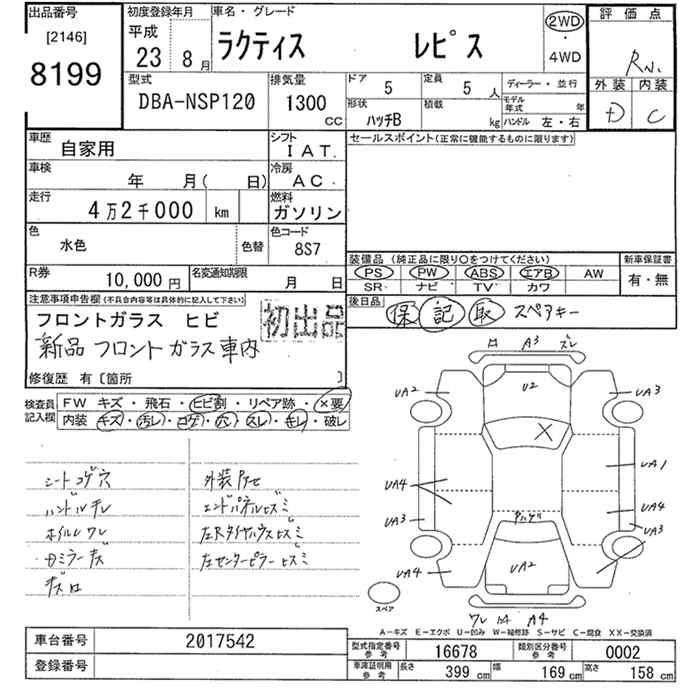 出品番号 [2146] 8199
初度登録年月 平成 23 8月
車名・グレード ラクティス レピス
2WD ・ 4WD
評価点 R
外装 内装 D C
型式 DBA-NSP120
排気量 1300 CC
ドア 5 定員 5 人
形状 ハッチB 積載 kg
ディーラー・並行
モデル年式 年
ハンドル 左・右
車歴 自家用
シフト IAT.
セールスポイント(正常に機能するものに限ります)
車検 年 月( 日)
冷房 AC
走行 4万2千000 km
燃料 ガソリン
色 水色 色替
色コード 8S7
装備品(純正品に限り○をつけてください) 新車保証書
PS PW ABS エアB AW 有・無
SR ナビ TV カワ
R券 10,000 円 名変通知期限 月 日
後日品 保 記 取 スペアキー
注意事項申告欄(不具合内容等は具体的に記入して下さい)
フロントガラス ヒビ
初出品
新品 フロントガラス車内
修復歴 有〔箇所 〕
検査員記入欄
FW キズ・飛石・ヒビ割・リペア跡・×要
内装 キズ・汚レ・コゲ・穴・スレ・キレ・破レ
シートコゲ穴
ハンドルチレ
ホイルワレ
外装
エンドパネルヒズミ
左Rタイヤハウスヒズミ
左センターピラーヒズミ
A3 スレ
UA2 U2 UA3
UA4 UA1
UA3 UA4
UA3
UA4 UA2
ワレ A4
スペア
A―キズ E―エクボ U―凹み W―補修跡 S―サビ C―腐食 XX―交換済
車台番号 2017542
登録番号
型式指定番号参考 16678 類別区分番号参考 0002
車庫証明用参考 長さ 399 cm 幅 169 cm 高さ 158 cm